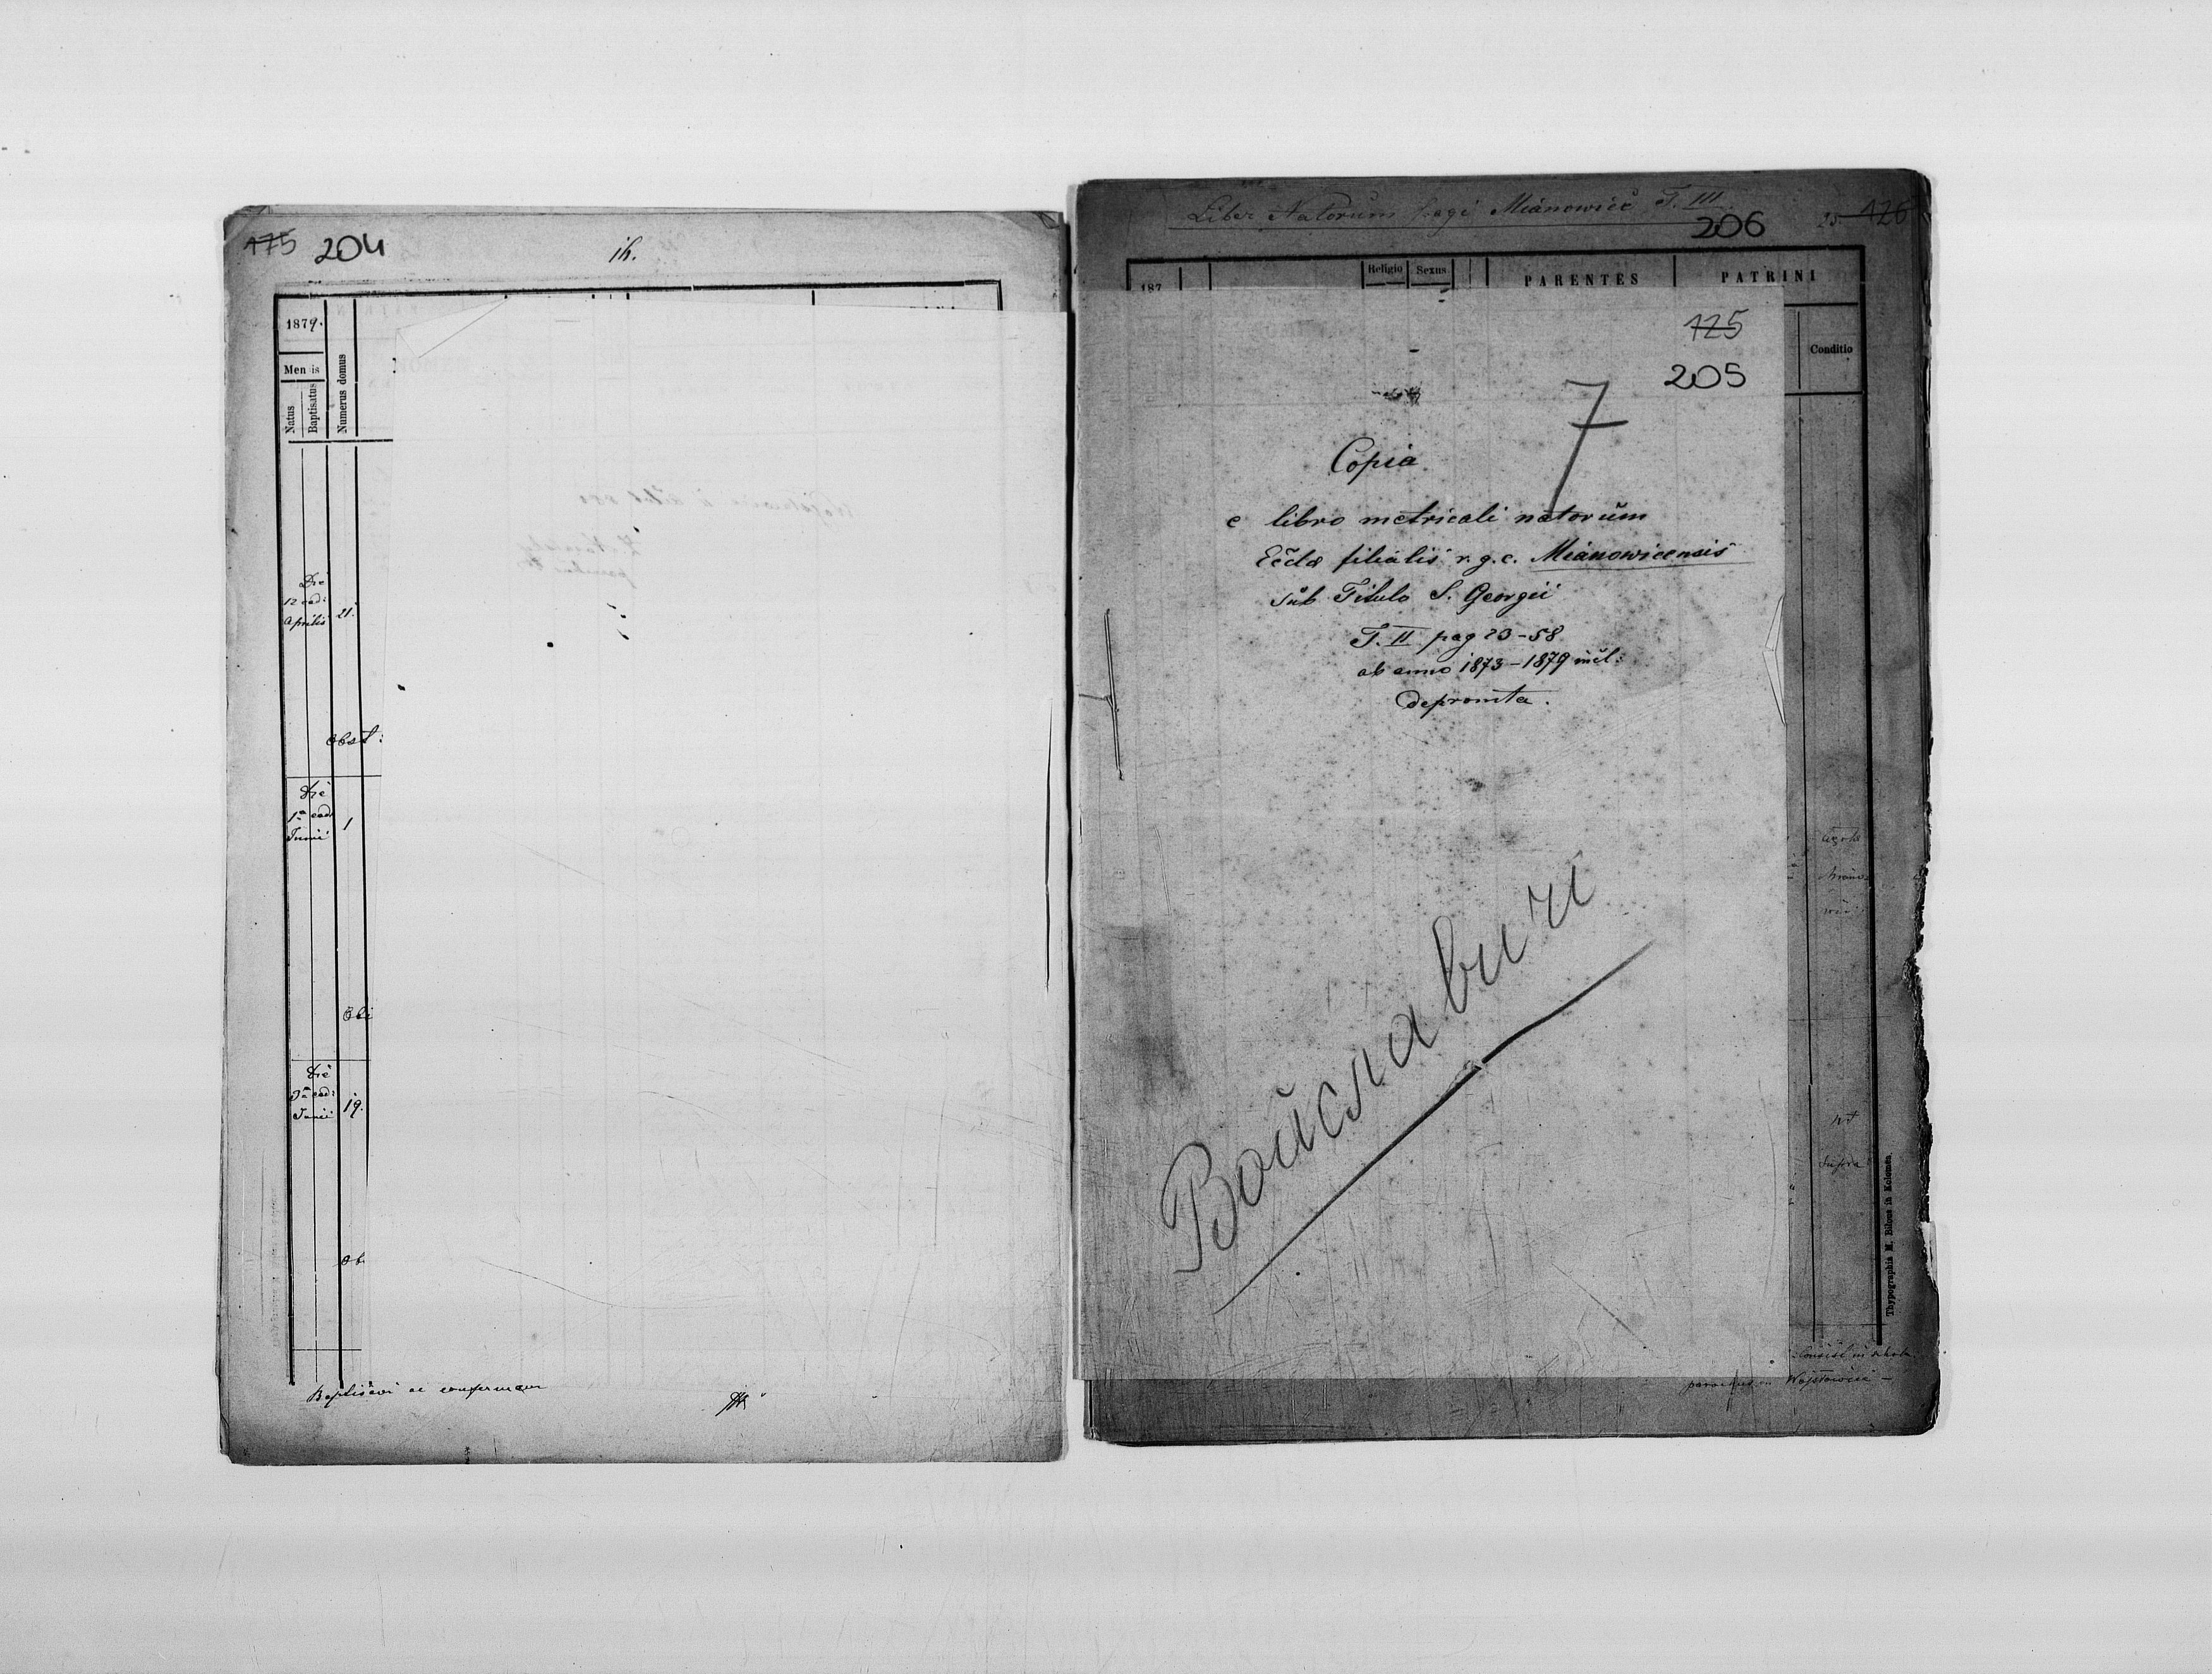 175 204
ik.
1879.
Mensis
Natus
Baptisatus
Numerus domus
Die
12 ead:
Aprilis
21.
Obst:
Die
1ª ead:
Junii
1
Obs
Die
3ª ead:
Junii
19.
Ob
Baptisavi ac confirmavi
Liber Natorum pagi Mianowice T. III
206
25 126
187
Religio
Sexus
PARENTES
PATRINI
Conditio
125
205
7
Copia
e libro metricali natorum
Eccla filialis r.g.c. Mianowicensis
sub Titulo S. Georgii
T. II pag 23-58
ab anno 1873-1879 incl:
depromta.
Войславичі
ut
supra
Thypographia M. Bilous in Kolomea.
parochus in Wojsławice